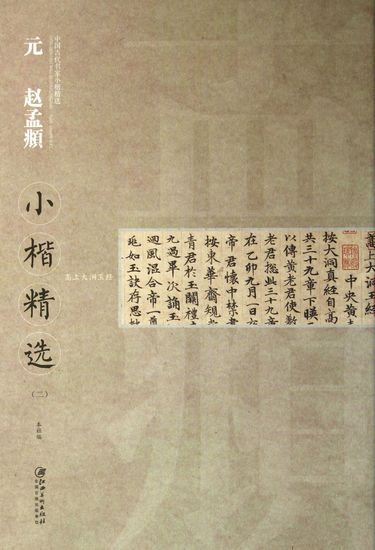 中国古代书家小楷精选
元 赵孟頫
小楷精选
(二)
高上大洞玉经
本社编
江西美术出版社
高上大洞玉經
中央黃
按大洞真經自高
共三十九章下暎
以傳黃老君使勤
老君摠此三十九章
在乙卯九月一日
帝君懷中禁書
按東華齋規
青君於玉闕禮
九過畢次誦玉
迴風混合帝一